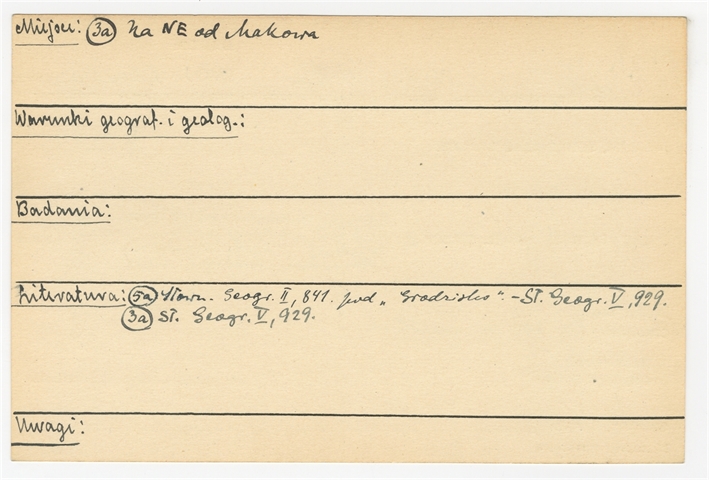 Miejsce: (3a) Na NE od Makowa
Warunki geograf. i geolog.:
Badania:
Literatura: (5a) Słown. Geogr. II, 841. pod „Grodzisko". - Sł. Geogr. V, 929.
(3a) Sł. Geogr. V, 929.
Uwagi: